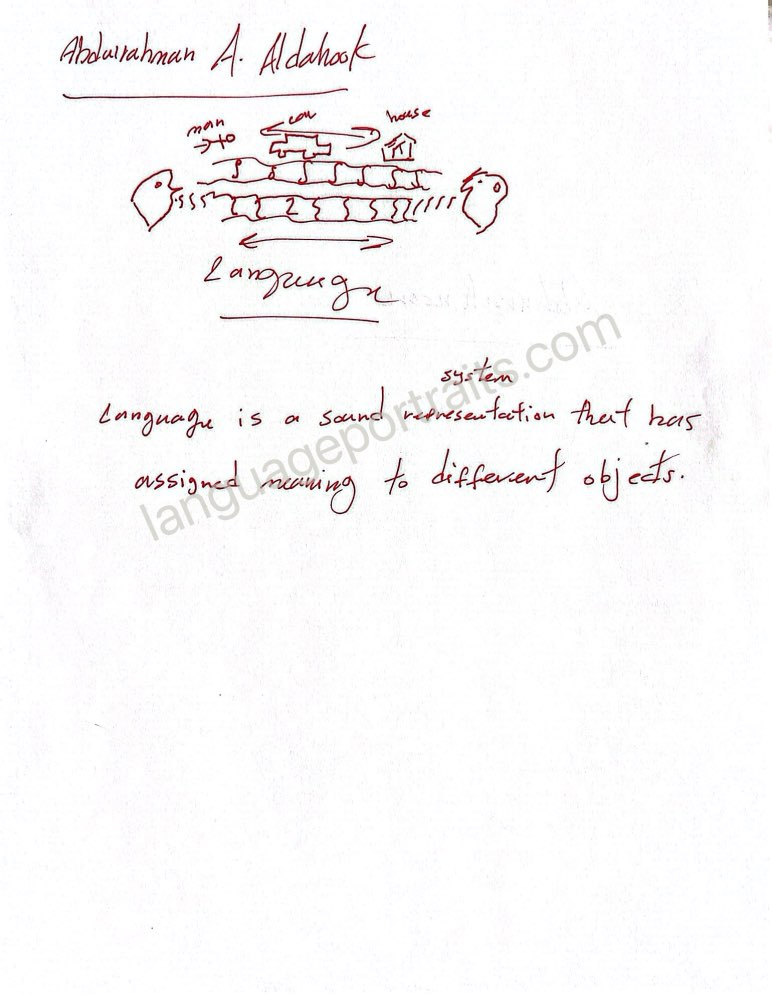 Abdulrahman A. Aldahook
man car house
Language
system
Language is a sound representation that has
assigned meaning to different objects.
languageportraits.com